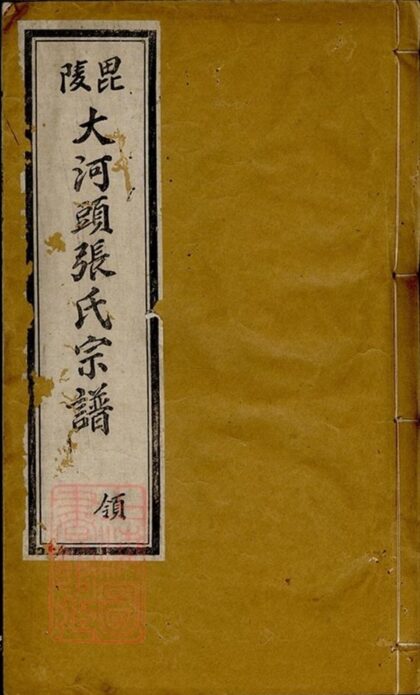 毘陵
大河頭張氏宗譜
領